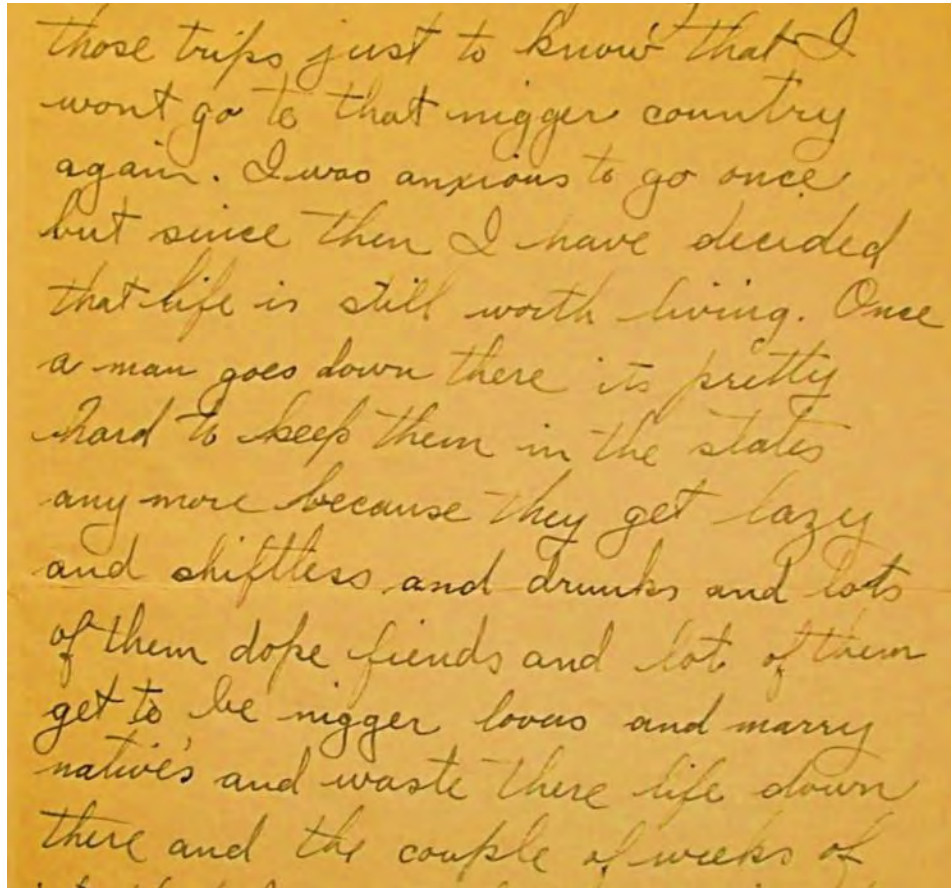 those trips just to know that I
wont go to that nigger country
again. I was anxious to go once
but since then I have decided
that life is still worth living. Once
a man goes down there its pretty
hard to keep them in the states
any more because they get lazy
and shiftless and drunks and lots
of them dope fiends and lot of them
get to be nigger lovers and marry
native's and waste there life down
there and the couple of weeks of